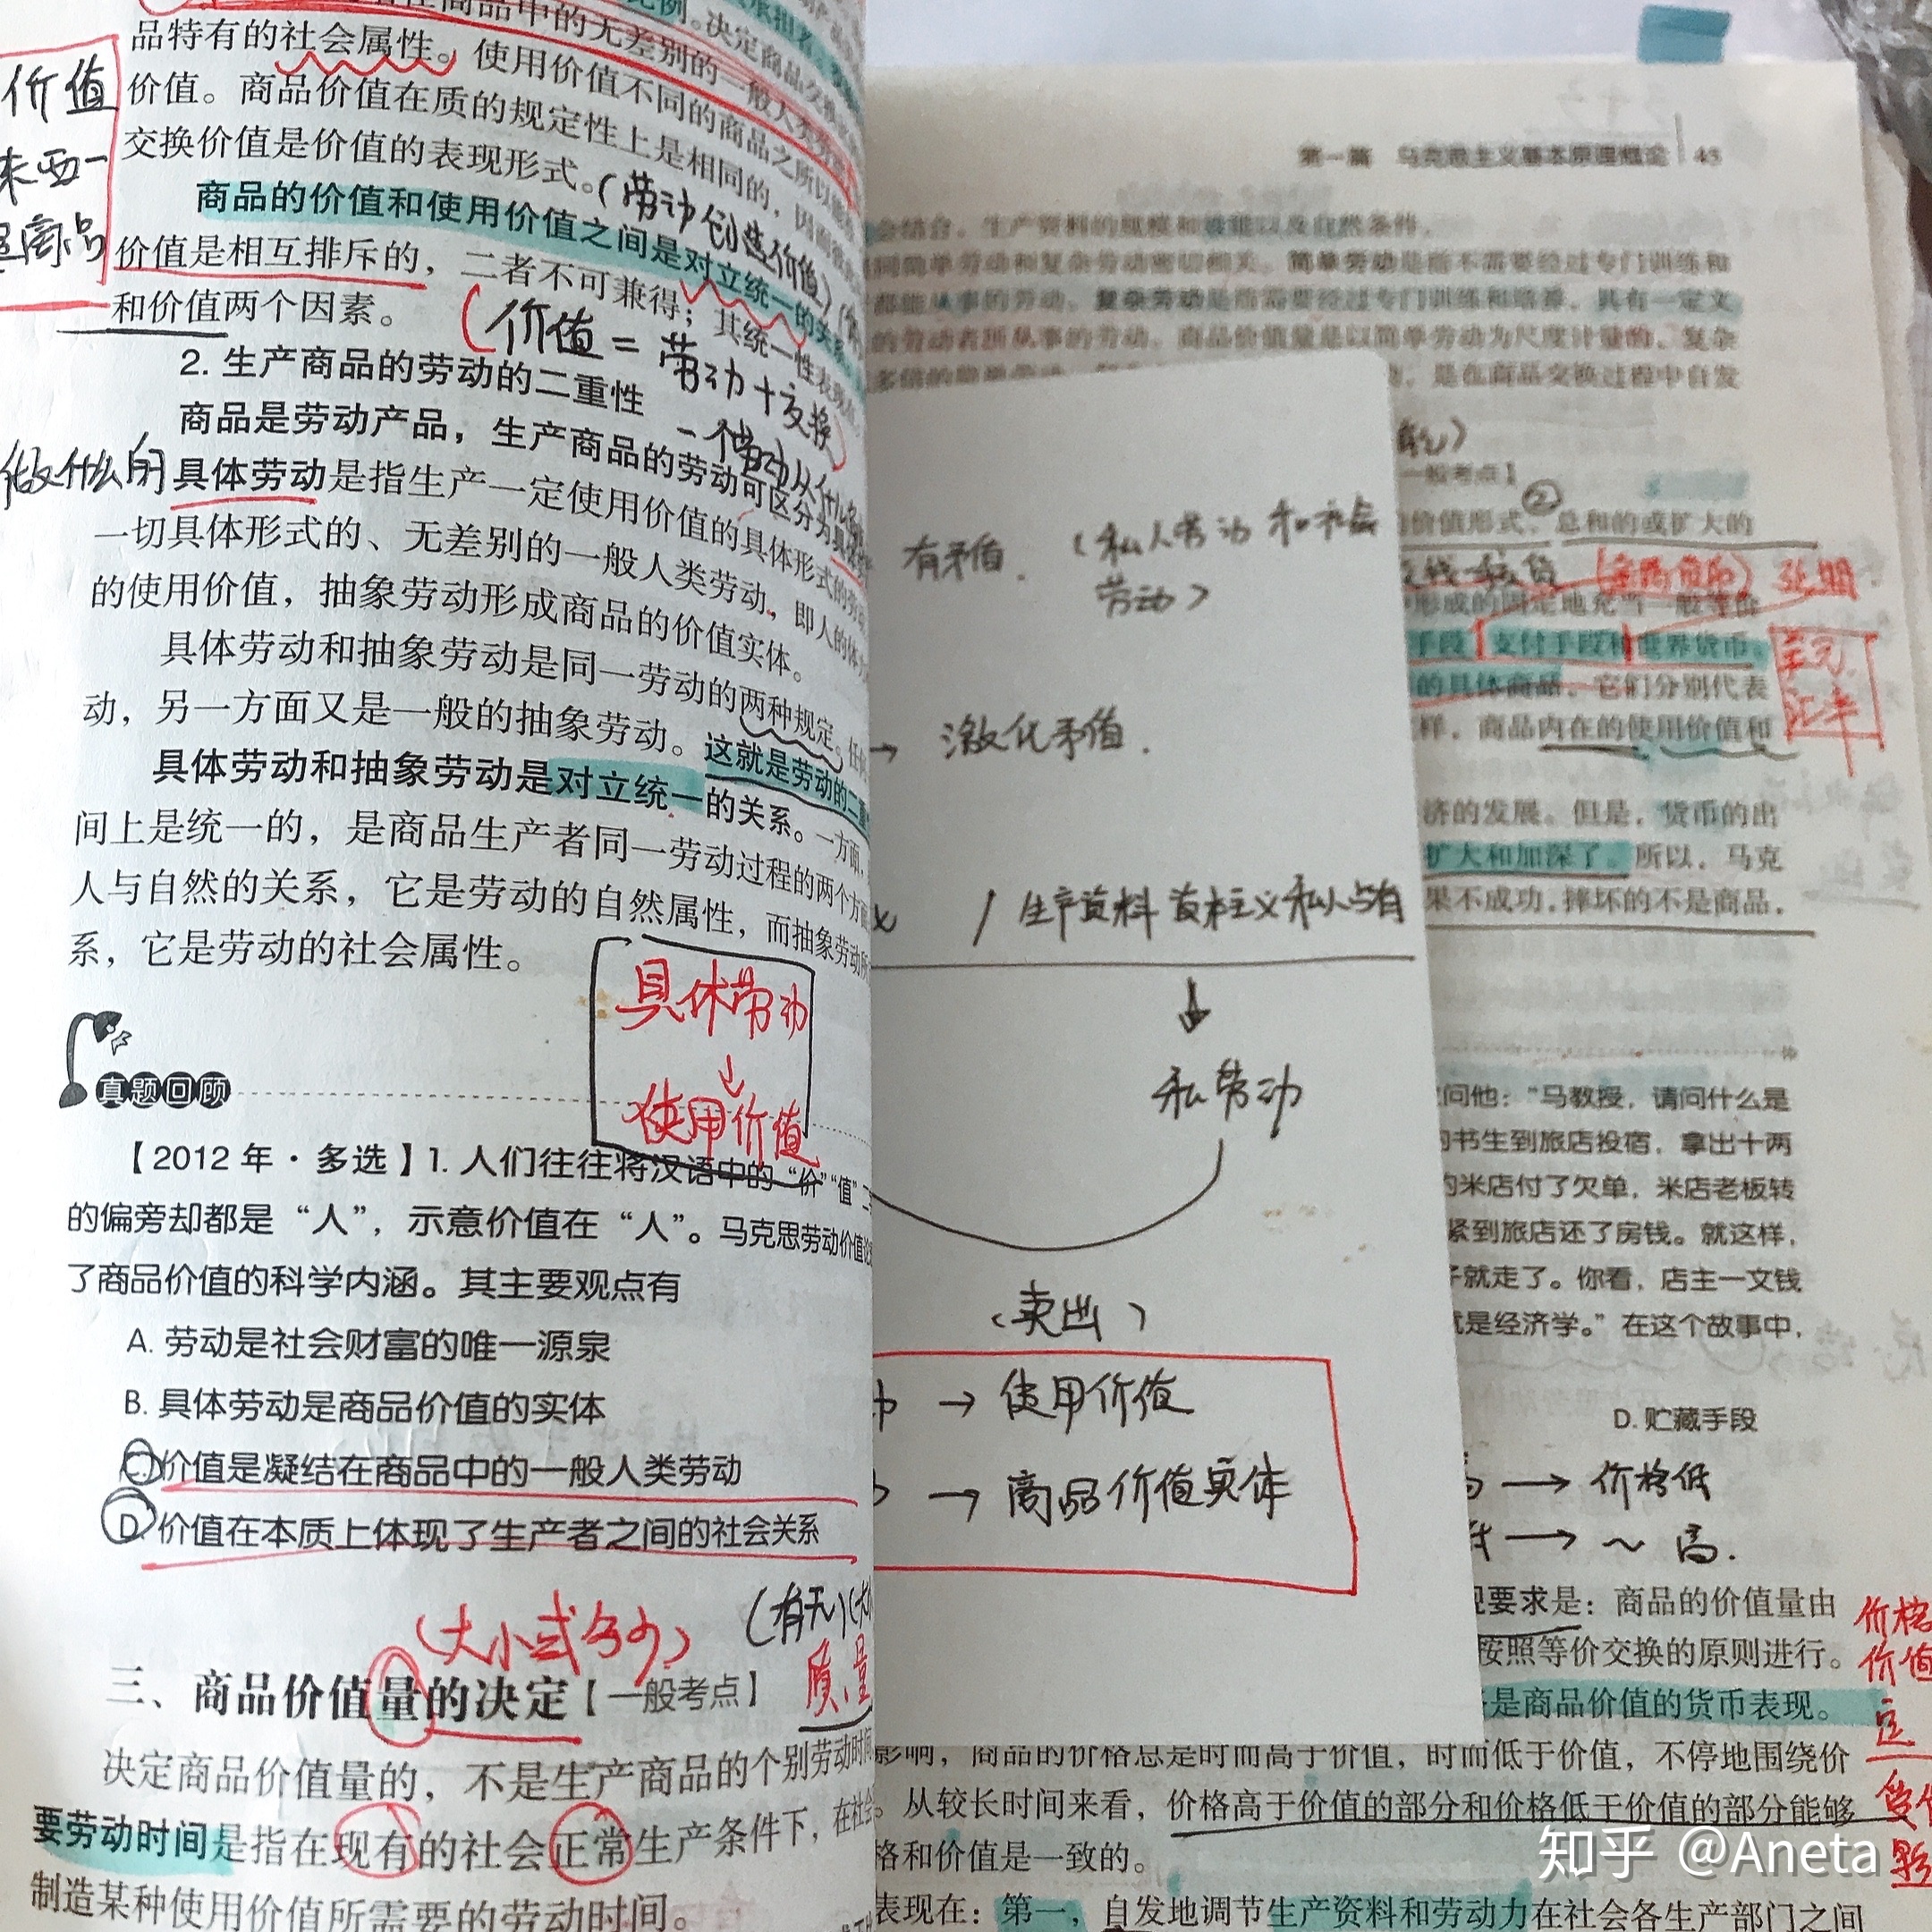 品特有的社会属性。使用价值不同的商品之所以
价值。商品价值在质的规定性上是相同的，因而
交换价值是价值的表现形式。(劳动创造价值)
商品的价值和使用价值之间是对立统一的关系
价值是相互排斥的，二者不可兼得；其统一性表现
和价值两个因素。
(价值=劳动+交换)
价值
商品
2. 生产商品的劳动的二重性
商品是劳动产品，生产商品的劳动可区分为具体
做什么的
具体劳动是指生产一定使用价值的具体形式的劳动
一切具体形式的、无差别的一般人类劳动，即人的体力
的使用价值，抽象劳动形成商品的价值实体。
具体劳动和抽象劳动是同一劳动的两种规定。任何
动，另一方面又是一般的抽象劳动。这就是劳动的二重
具体劳动和抽象劳动是对立统一的关系。一方面，
间上是统一的，是商品生产者同一劳动过程的两个方面
人与自然的关系，它是劳动的自然属性，而抽象劳动所
系，它是劳动的社会属性。
具体劳动
↓
使用价值
真题回顾
【2012 年·多选】1. 人们往往将汉语中的“价”“值”二
的偏旁却都是“人”，示意价值在“人”。马克思劳动价值论
了商品价值的科学内涵。其主要观点有
A. 劳动是社会财富的唯一源泉
B. 具体劳动是商品价值的实体
C. 价值是凝结在商品中的一般人类劳动
D. 价值在本质上体现了生产者之间的社会关系
(大小或多少)
(有无)
质量
三、商品价值量的决定【一般考点】
决定商品价值量的，不是生产商品的个别劳动时间
要劳动时间是指在现有的社会正常生产条件下，在社会
制造某种使用价值所需要的劳动时间。
有矛盾. (私人劳动 和社会
劳动)
→ 激化矛盾.
/ 生产资料 资本主义私人占有
↓
私劳动
(卖出)
→ 使用价值
→ 商品价值实体
第一篇 马克思主义基本原理概论 45
会结合，生产资料的规模和效能以及自然条件。
同简单劳动和复杂劳动密切相关。简单劳动是指不需要经过专门训练和
都能从事的劳动。复杂劳动是指需要经过专门训练和培养，具有一定文
的劳动者所从事的劳动。商品价值量是以简单劳动为尺度计量的，复杂
是在商品交换过程中自发
一般考点】
价值形式、②总和的或扩大的
形成的固定地充当一般等价
手段、支付手段和世界货币。
美元
汇率
的具体商品，它们分别代表
样，商品内在的使用价值和
济的发展。但是，货币的出
扩大和加深了。所以，马克
果不成功，摔坏的不是商品，
问他：“马教授，请问什么是
的书生到旅店投宿，拿出十两
的米店付了欠单，米店老板转
紧到旅店还了房钱。就这样，
子就走了。你看，店主一文钱
就是经济学。”在这个故事中，
D. 贮藏手段
→ 价格低
低 → ～ 高.
观要求是：商品的价值量由
按照等价交换的原则进行。
是商品价值的货币表现。
价格
价值
定
受
影响，商品的价格总是时而高于价值，时而低于价值，不停地围绕价
。从较长时间来看，价格高于价值的部分和价格低于价值的部分能够
格和价值是一致的。
表现在：第一，自发地调节生产资料和劳动力在社会各生产部门之间
知乎 @Aneta